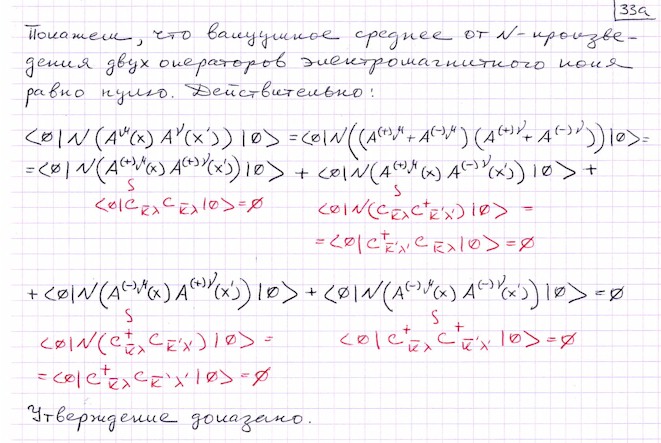 33а
Покажем, что вакуумное среднее от N-произве-
дения двух операторов электромагнитного поля
равно нулю. Действительно:
<0|N(A^μ(x) A^ν(x'))|0> = <0|N((A^(+)μ + A^(-)μ)(A^(+)ν + A^(-)ν))|0> =
= <0|N(A^(+)μ(x) A^(+)ν(x'))|0> + <0|N(A^(+)μ(x) A^(-)ν(x'))|0> +
<0|C_k̄λ C_k̄λ|0> = 0
<0|N(C_k̄λ C⁺_k̄'λ')|0> =
= <0|C⁺_k̄'λ' C_k̄λ|0> = 0
+ <0|N(A^(-)μ(x) A^(+)ν(x'))|0> + <0|N(A^(-)μ(x) A^(-)ν(x'))|0> = 0
<0|N(C⁺_k̄λ C_k̄'λ')|0> =
= <0|C⁺_k̄λ C_k̄'λ'|0> = 0
<0|C⁺_k̄λ C⁺_k̄'λ'|0> = 0
Утверждение доказано.